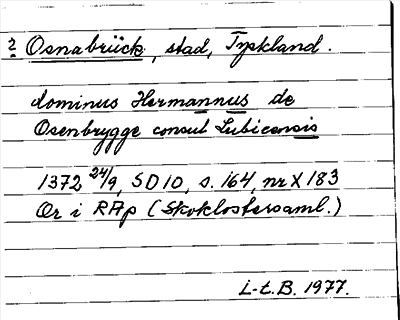 ? Osnabrück, stad, Tyskland.
dominus Hermannus de
Osenbrygge consul Lubicensis
1372 24/9, SD 10, s. 164, nr X 183
Or i RAp (Skoklostersaml.)
L-t.B. 1977.